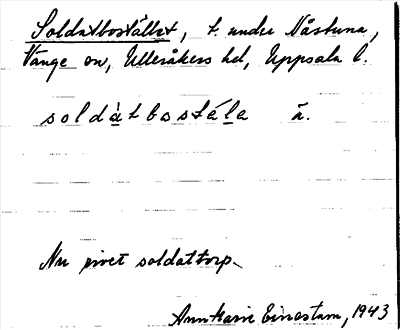 Soldatbostället, t. under Nåstuna,
Vänge sn, Ulleråkers hd, Uppsala l.
soldàtbostẹḷe ä.
Nu rivet soldattorp.
AnnMarie Einestam, 1943